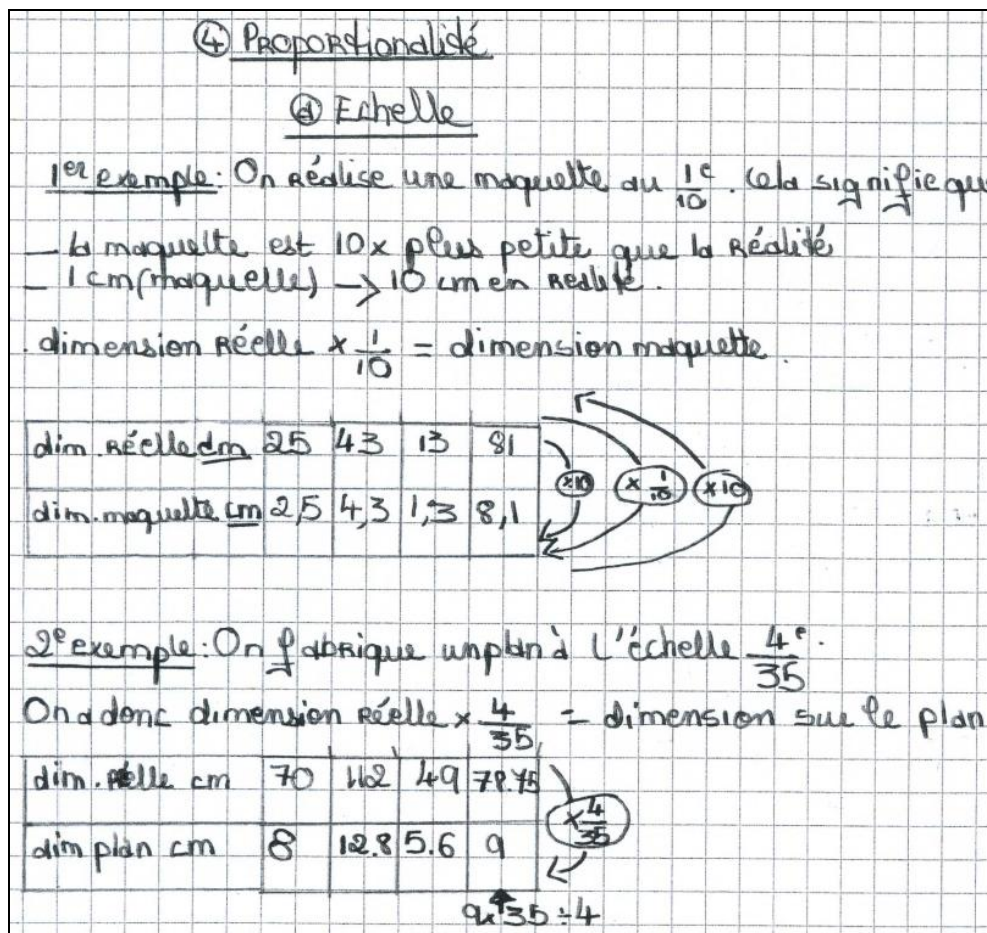 ④ PROPORtionalité
ⓓ Echelle
1er exemple: On Réalise une maquette au 1/10e. Cela signifie qu
– la maquette est 10x plus petite que la Réalité
– 1 cm (maquette) → 10 cm en Réalité.
. dimension Réelle × 1/10 = dimension maquette.
dim. Réelle cm 25 43 13 81
×10 × 1/10 ×10
dim. maquette cm 2,5 4,3 1,3 8,1
2e exemple: On fabrique un plan à l'échelle 4/35e.
On a donc dimension Réelle × 4/35 = dimension sur le plan
dim. réelle cm 70 112 49 78.75
× 4/35
dim plan cm 8 12.8 5.6 9
9x35÷4